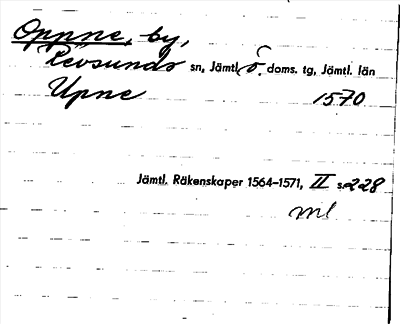 Oppne, by,
Revsunds sn, Jämtl. ö. doms. tg, Jämtl. län
Upne 1570
Jämtl. Räkenskaper 1564–1571, II s. 228
ml